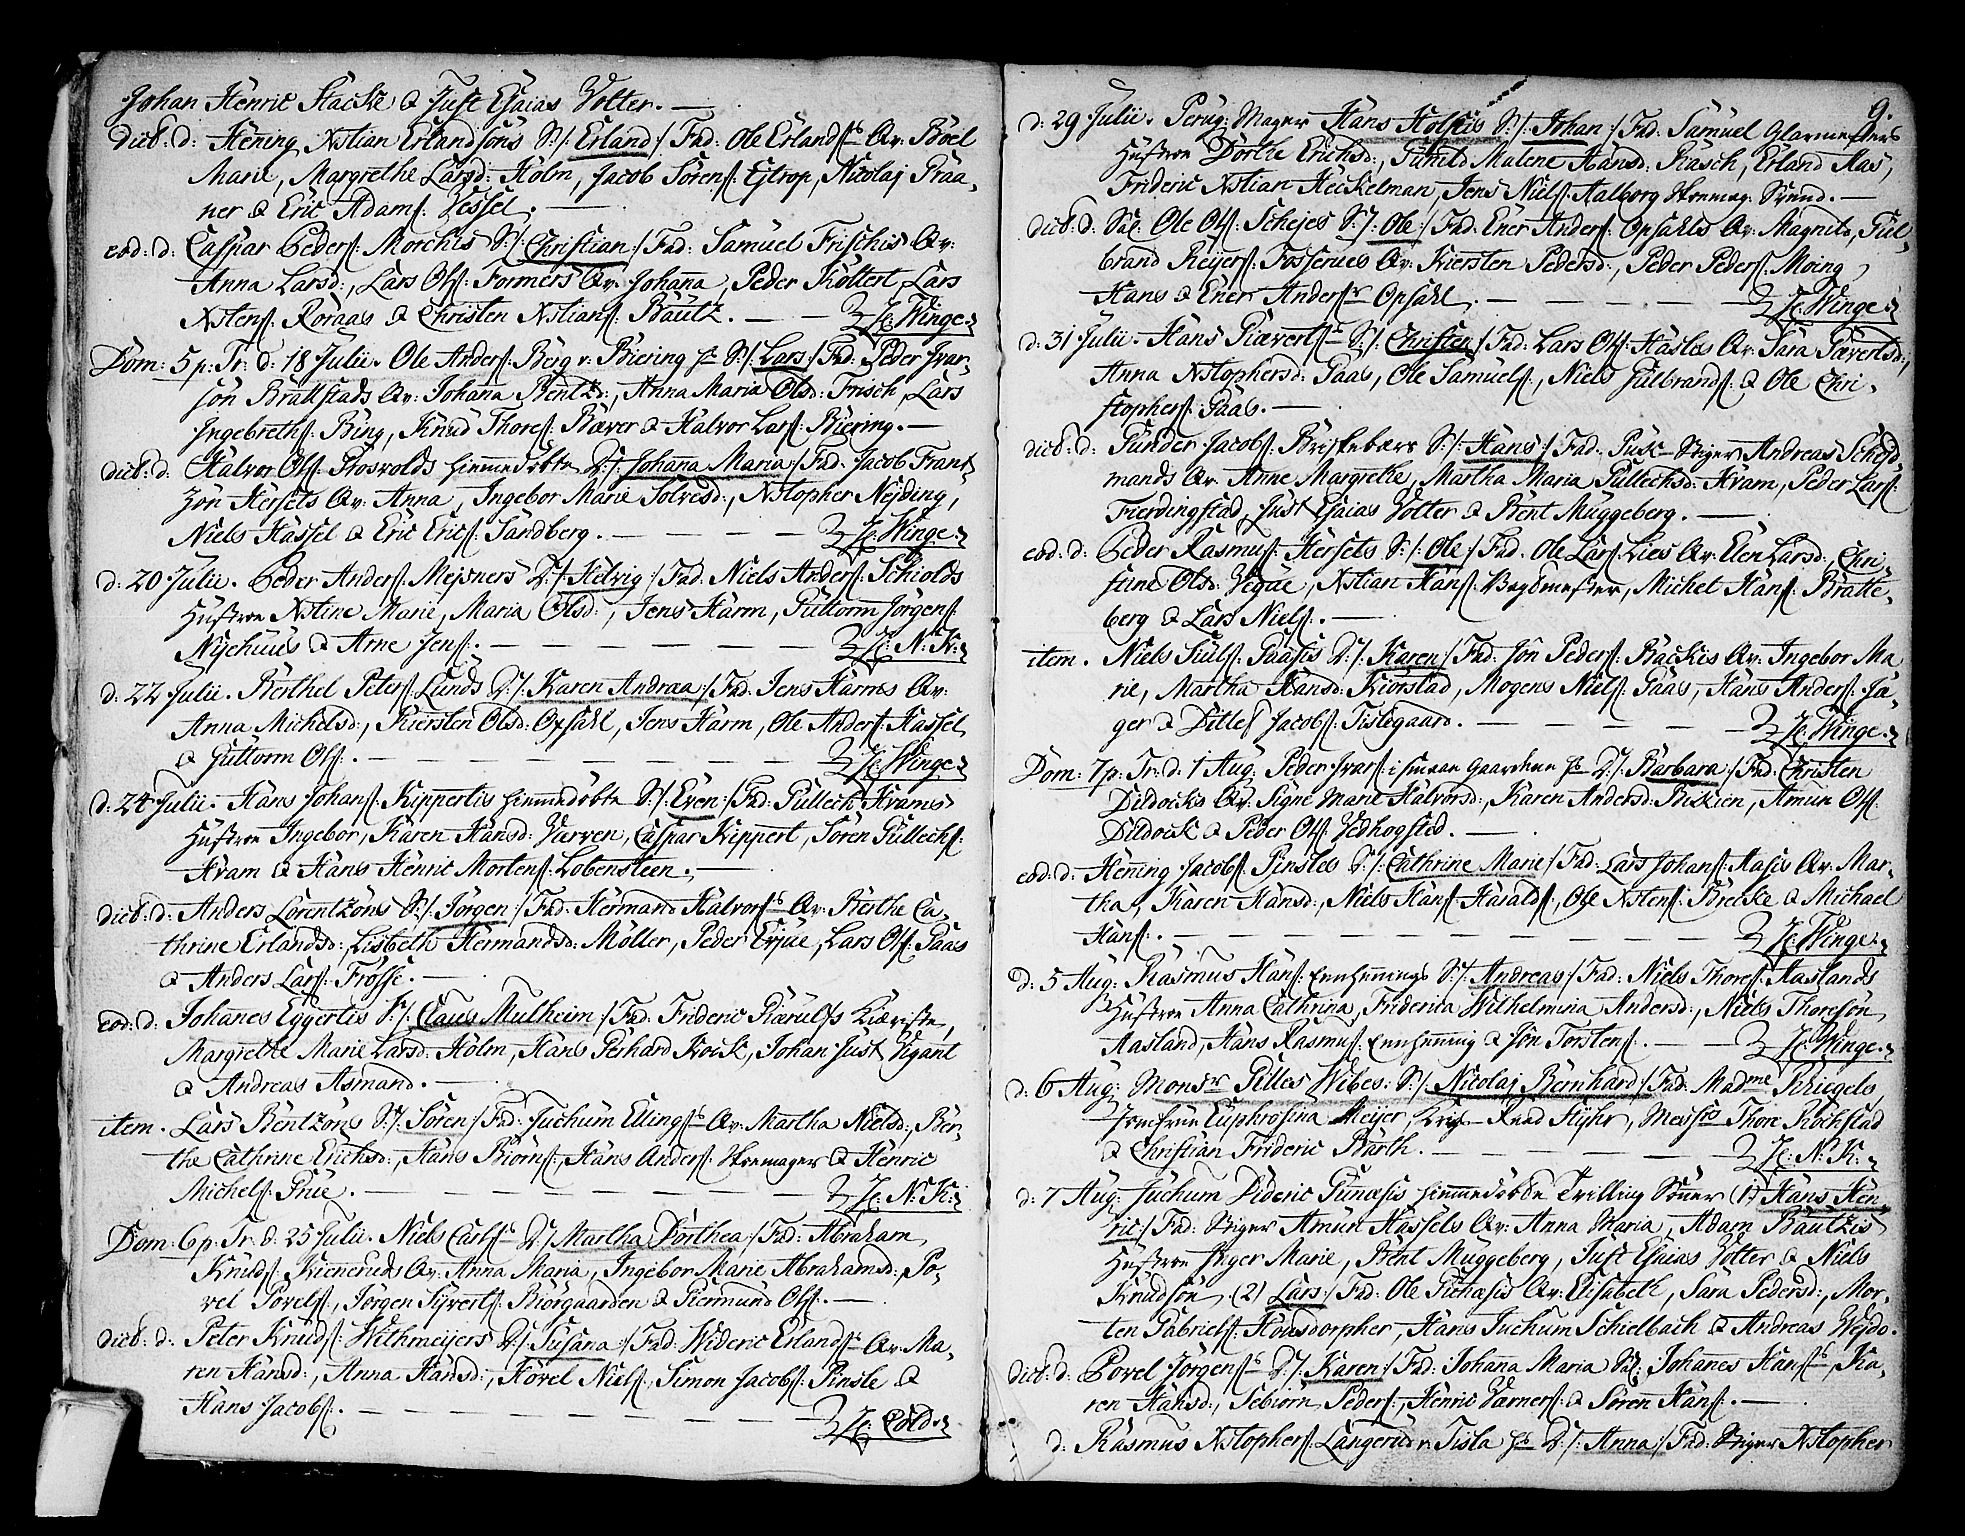 Johan Henric Stacke & Just Esaias Volter. —
dicb: d: Hening Xstian Erlandsöns S:/: Erland :/ Fad: Ole Erlands:s Qv: Böel
Marie, Margrethe Larsd: Holm, Jacob Sörens: Ejtrop, Nicolaj Praa-
ner & Eric Adams: Vessel. —
eod: d: Caspar Peders: Morchis S:/: Christian :/ Fad: Samuel Frischis Qv:
Anna Larsd:, Lars Ols: Formers Qv: Johana, Peder Koltert, Lars
Xstens: Roraas & Christen Xstians: Bautz. — — H: Winge.
Dom: 5 p: Tr: d: 18 Julii. Ole Anders: Berg v: Biering hs S:/: Lars :/ Fad: Peder Ivar-
sön Brattstads Qv: Johana Bentzd:, Anna Maria Olsd: Frisch, Lars
Ingebreths: Bing, Knud Thores: Bæver & Halvor Lars: Biering. —
dicb: d: Halvor Ols: Stosvolds hiemmedöbte D:/: Johana Maria :/ Fad: Jacob Frant-
zön Hersets Qv: Anna, Ingebor Marie Solvesd:, Xstopher Nejding,
Niels Hassel & Eric Erics: Sandberg. — — — — H: Winge.
d: 20 Julii. Peder Anders: Mejsners D:/: Helvig :/ Fad: Niels Anders: Schiolds
Hustroe Xstine Marie, Maria Olsd:, Jens Harm, Guttorm Jörgens:
Nijehuus & Arne Jens:. — — — — — — H: N: K:
d: 22 Julii. Berthel Peters: Lunds D:/: Karen Andræa :/ Fad: Jens Harms Qv:
Anna Michelsd:, Kiersten Olsd: Opsahl, Jens Harm, Ole Anders: Hassel
& Guttorm Ols:. — — — — — — — — H: Winge.
d: 24 Julii. Hans Johans: Kippertis hiemmedöbte S:/: Even :/ Fad: Gullech Krams
Hustroe Ingebor, Karen Hansd: Vierven, Caspar Kippert, Sören Gullechs:
Kram & Hans Henric Mortens: Lobensteen. —
dicb: d: Anders Lorentzöns S:/: Jörgen :/ Fad: Hermand Halvors:s Qv: Berthe Ca-
thrine Erlandsd:, Lisbeth Hermandsd: Möller, Peder Erjue, Lars Ols: Gaas
& Anders Lars: Frosse. —
eod: d: Johanes Eggertis S:/: Claus Mulheim :/ Fad: Frideric Giærulfs Kiæriste,
Margrethe Marie Larsd: Holm, Hans Gerhard Kock, Johan Just Vigant
& Andreas Asmand. —
item. Lars Bentzöns S:/: Sören :/ Fad: Juchum Ellings:s Qv: Martha Nielsd:, Ber-
the Cathrine Erichsd:, Hans Biörns:, Hans Anders: Skomager & Henric
Michels: Prue. — — — — — — — — H: N: K:
Dom: 6 p: Tr: d: 25 Julii. Niels Carls:s D:/: Martha Dorthea :/ Fad: Abraham
Knuds: Kieneruds Qv: Anna Maria, Ingebor Marie Abrahamsd:, Po-
vel Povels:, Jörgen Sijverts: Biörgaarden & Germund Ols:. —
dicb: d: Peter Knuds: Withmeijers D:/: Susana :/ Fad: Wideric Erlands:s Qv: Ma-
ren Hansd:, Anna Hansd:, Hovel Niels:, Simon Jacobs: Pinsle &
Hans Jacobs:. — — — — — — — — H: Cold.
9.
d: 29 Julii. Peruq: Mager Hans Holstis S:/: Johan :/ Fad: Samuel Glarmesters
Hustroe Dorthe Erichsd:, Gunild Malene Hansd: Rasch, Erland Aas,
Frideric Xstian Heckelman, Jens Niels: Aalborg Skomag: Svend. —
dicb: d: Sal: Ole Ols: Schejes S:/: Ole :/ Fad: Ener Anders: Opsahls Qv: Magnild, Gul-
brand Reijers: Fosserues Qv: Kiersten Pedersd:, Peder Peders: Moing
Hans & Ener Anders:r Opsahl. — — — — — H: Winge.
d: 31 Julii. Hans Giæverts:s S:/: Christen :/ Fad: Lars Ols: Hasles Qv: Sara Gævertsd:,
Anna Xstophersd: Gaas, Ole Samuels:, Niels Gulbrands: & Ole Chri-
stophers: Gaas. —
dicb: d: Gunder Jacobs: Briskebærs S:/: Hans :/ Fad: Stiger Andreas Schöd
mands Qv: Anne Margrethe, Martha Maria Gullechsd: Kram, Peder Lars:
Fierdingstad, Just Esaias Volter & Bent Muggeberg. —
eod: d: Peder Rasmus: Hersets S:/: Ole :/ Fad: Ole Lars: Lies Qv: Elen Larsd:, Chri-
stine Olsd: Vegue, Xstian Hans: Bygdmester, Michel Hans: Bratte-
berg & Lars Niels:. —
item. Niels Siuls: Gaasis D:/: Karen :/ Fad: Jön Peders: Backis Qv: Ingebor Ma
rie, Martha Hansd: Kiörstad, Mogens Niels: Gaas, Hans Anders: Ja-
ger & Ditlef Jacobs: Tislegaard. — — — — — H: Winge.
Dom: 7 p: Tr: d: 1 Aug: Peder Ivars: i Smeaae Gaardene hs D:/: Barbara :/ Fad: Christen
Dildocks Qv: Signe Marie Halvorsd:, Karen Andersd: Biskien, Amun Ols:
Dildock & Peder Ols: Vedhogsted. —
eod: d: Hening Jacobs: Pinsles D:/: Cathrine Marie :/ Fad: Lars Johans: Aasis Qv: Mar-
tha, Karen Hansd:, Niels Hans: Haralds:, Ole Xstens: Brecke & Michael
Hans:. — — — — — — — — H: Winge.
d: 5 Aug: Rasmus Hans: Ennhennings S:/: Andreas :/ Fad: Niels Thores: Aaslands
Hustroe Anna Cathrina, Friderica Wilhelmina Andersd:, Niels Thoresön
Aasland, Hans Rasmus: Ennhenning & Jön Torstens:. — — H: Winge.
d: 6 Aug: Monsr Gilles Wibes: S:/: Nicolaj Bernhard :/ Fad: Madme Kriegels,
Jomfrue Euphrosina Meijer, Krigs-Raad Stÿhr, Monss Thore Rockstad
& Christian Frideric Barth. — — — — — H: N: K:
d: 7 Aug: Juchum Dideric Gunæsis hiemmedöbde Trilling Söner (1) Hans Hen
ric :/ Fad: Stiger Amun Hassels Qv: Anna Maria, Adam Bautzis
Hustroe Inger Marie, Bent Muggeberg, Just Esaias Volter & Niels
Knudsön. (2) Lars :/ Fad: Ole Gichæsis Qv: Elisabeth, Sara Pedersd:, Mor-
ten Gabriels: Honsdorpher, Hans Juchum Schielbach & Andreas Wejdo.
dicb: d: Povel Jörgens:s D:/: Karen :/ Fad: Johana Maria Sal: Johanes Hans:s, Ka-
ren Hansd:, Sebiörn Peders:, Henric Værners: & Sören Hans:. —
d: Rasmus Xstophers: Langerud v: Tisla hs D:/: Anna :/ Fad: Stiger Xstopher